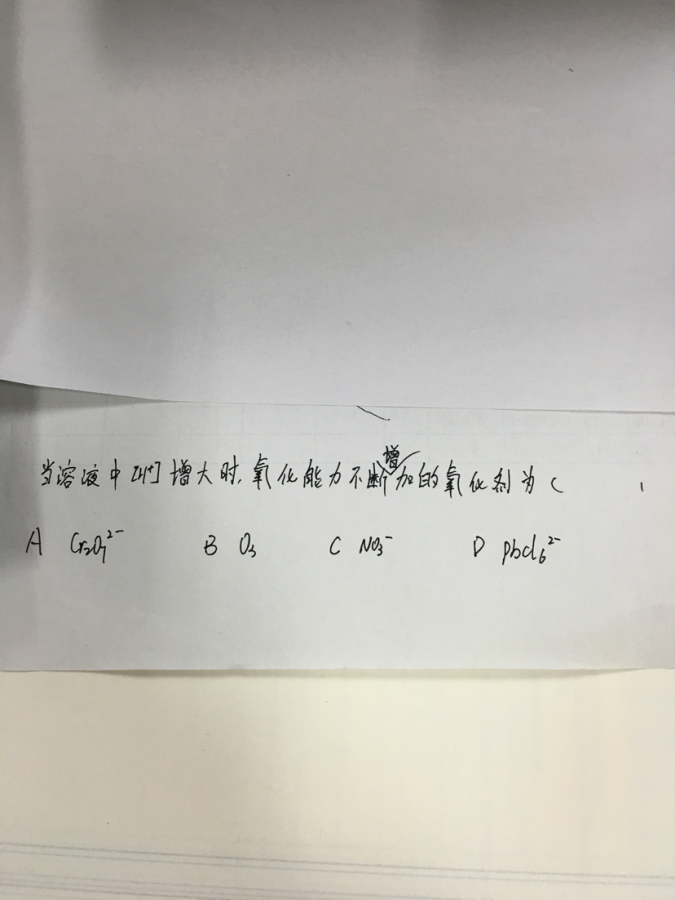 当溶液中[H⁺]增大时,氧化能力不断增加的氧化剂为( )
A Cr₂O₇²⁻ B O₃ C NO₃⁻ D PbCl₆²⁻